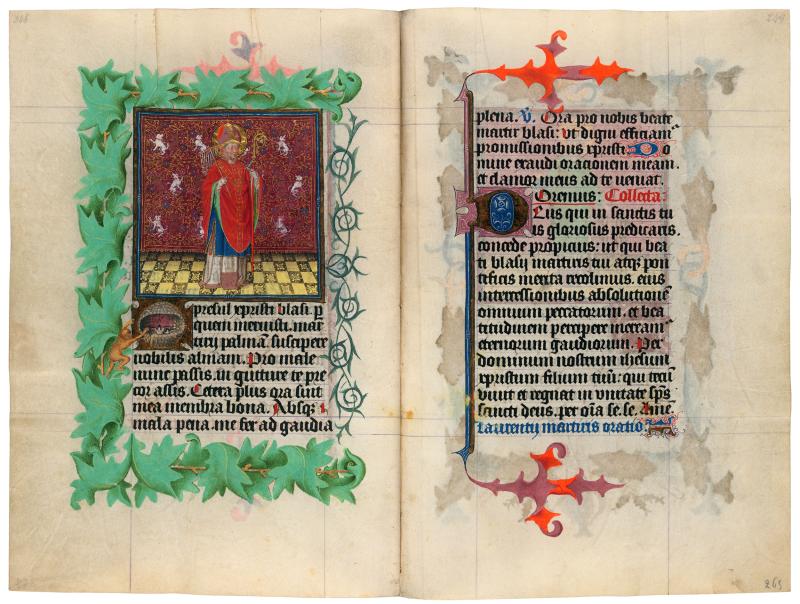 O presul xpristi blasi. p
quem meruisti. mar
tirij palmā. suscipere
nobilis almam. Pro male
nunc passis. in gutture te pre
cor assis. Cetera plus ora sint
mea membra bona. Absqz
mala pena. me fer ad gaudia
264
plena. V. Ora pro nobis beate
martir blasi: vt digni efficiam
promissionibus xpristi. Do
mine exaudi orationem meam.
et clamor meus ad te veniat.
Oremus: Collecta:
Deus qui in sanctis tu
is gloriosus predicaris.
concede propicius: ut qui bea
ti blasij martiris tui atqz pon
tificis merita recolimus. eius
intercessionibus absolutionē
omnium peccatorum. et bea
titudinem percipere mereami
eternorum gaudiorum. Per
dominum nostrum ihesum
xpristum filium tuū: qui tecū
viuit et regnat in vnitate sp̄s
sancti deus. per oīa se. se. Ame.
Laurentij martiris oratio.
265